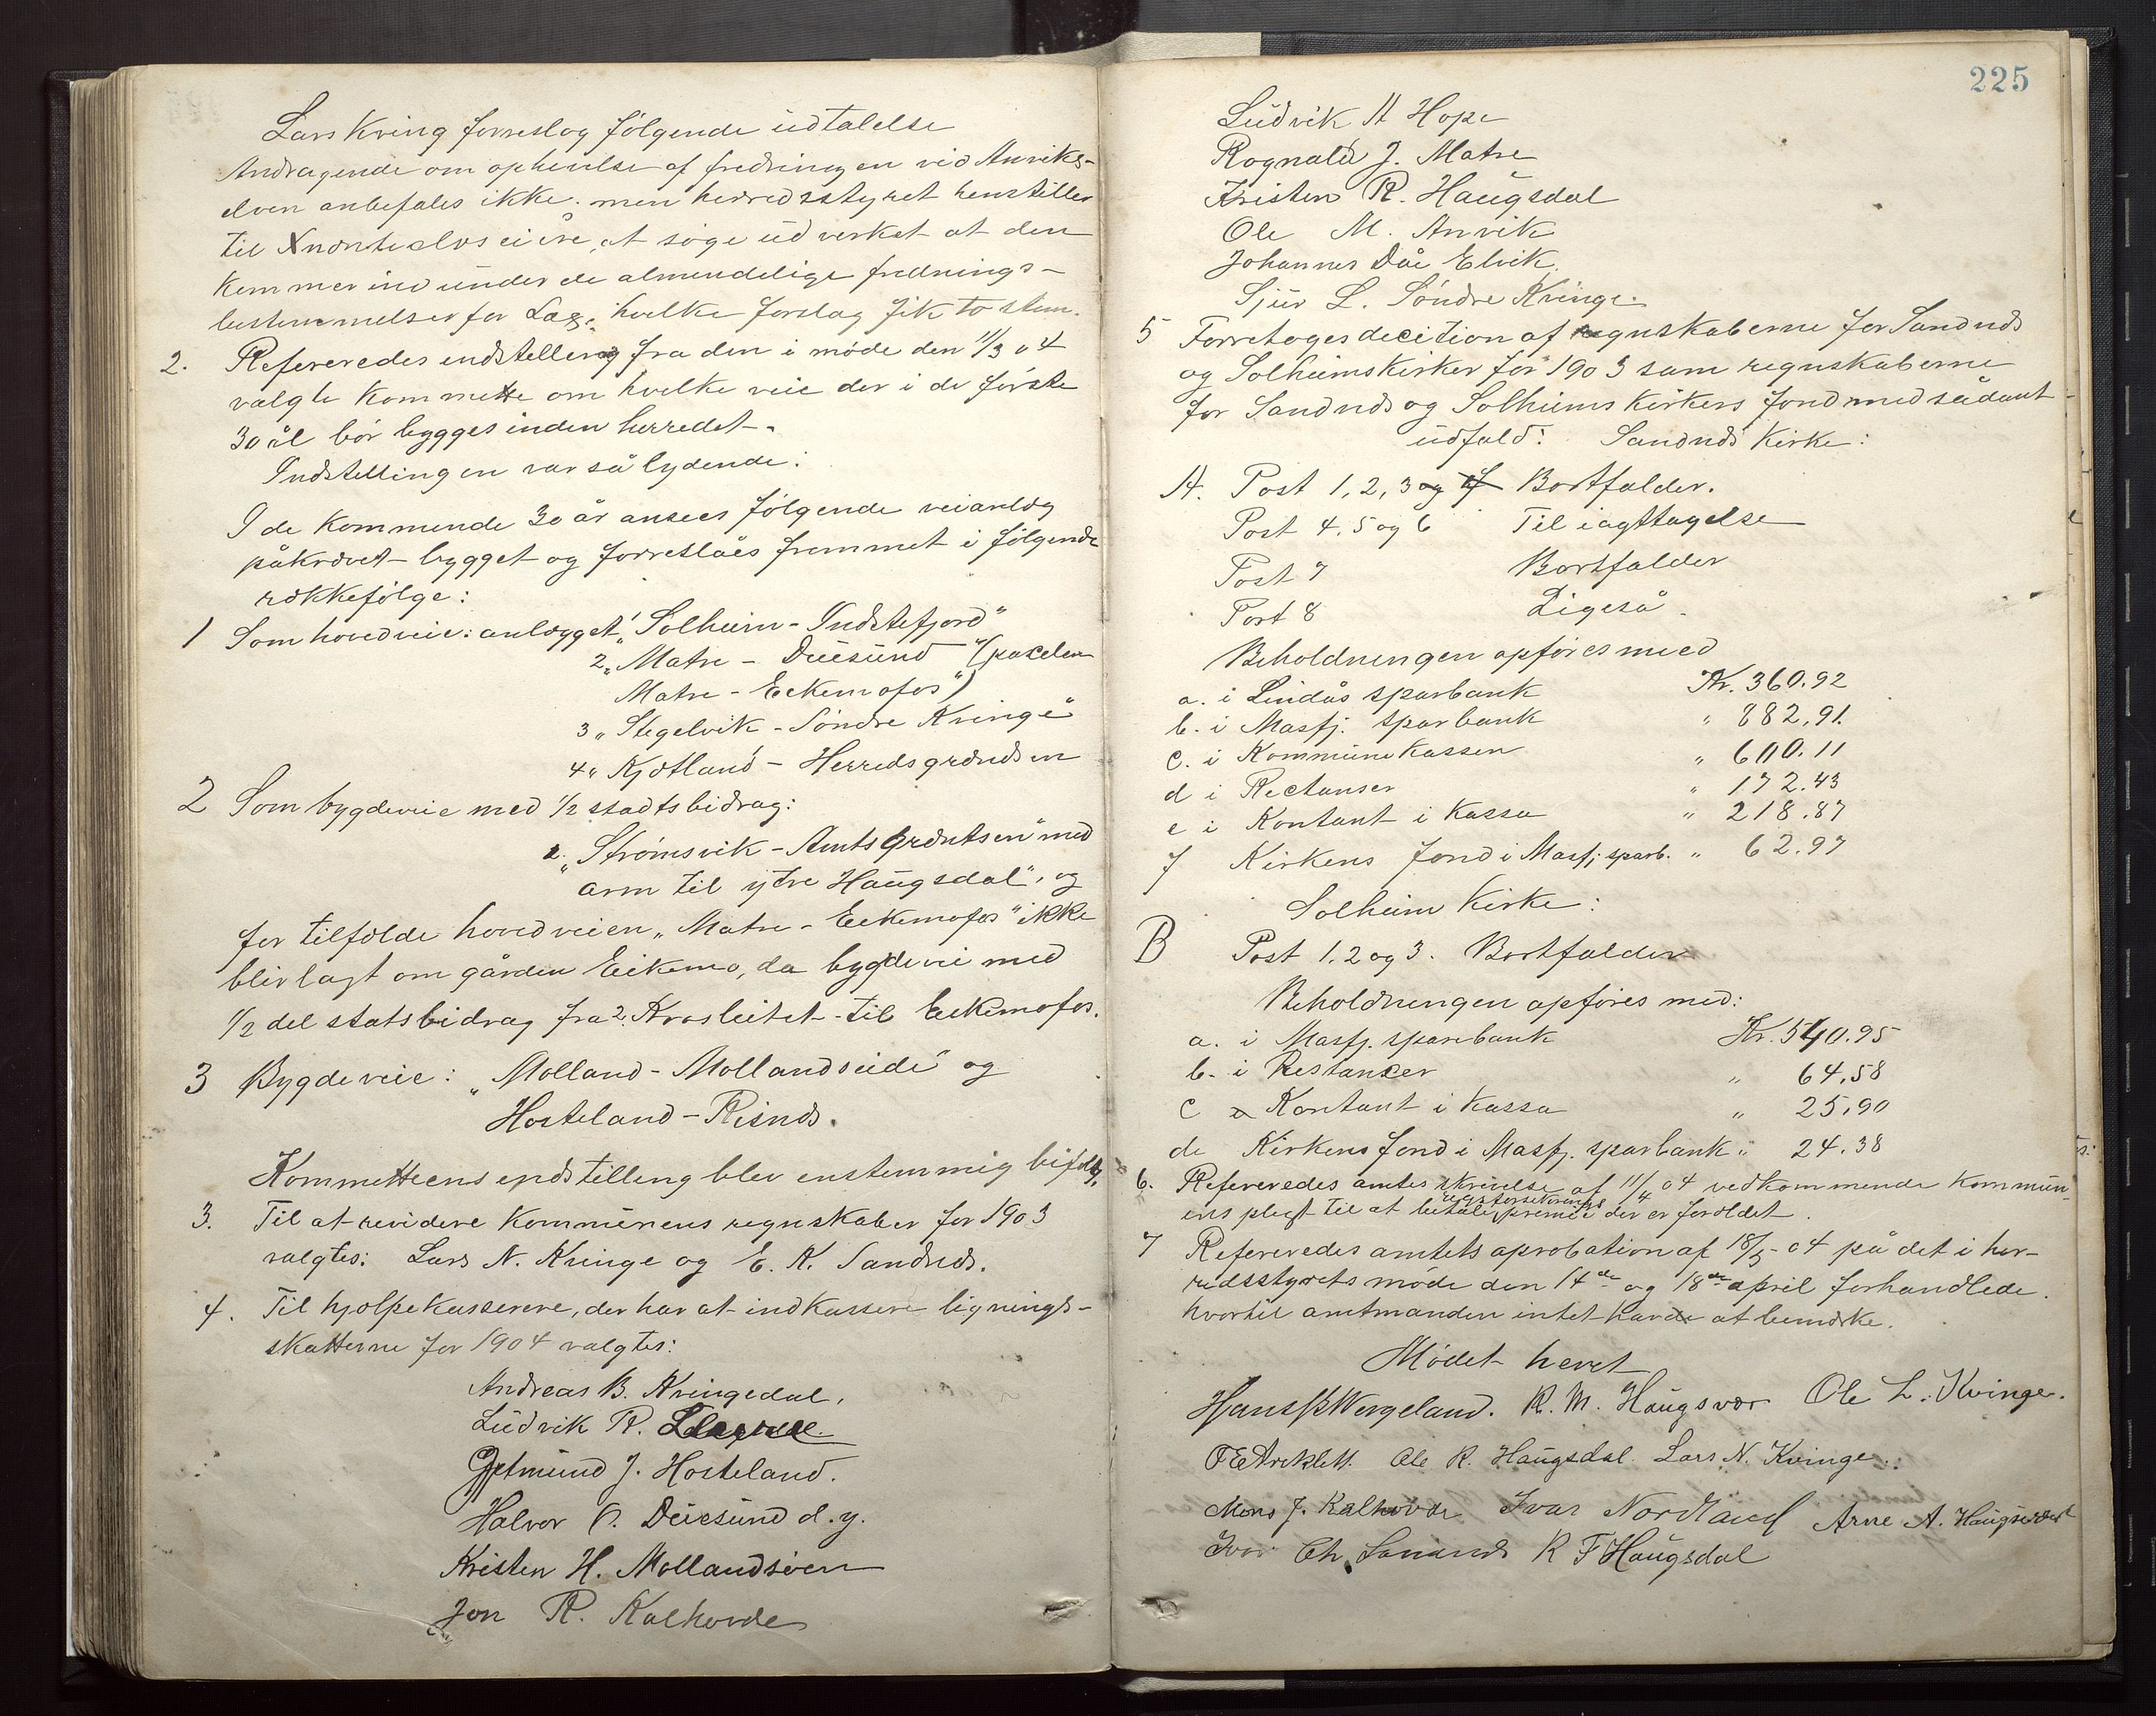 Lars Kving forreslog følgende udtalelse
Andragende om ophevelse af fredningen vid Anviks-
elven anbefales ikke. men herredsstyret henstiller
til at søge udvirket at den
kommer ind under de almindelige frednings-
bestemmelser for Lax, hvilke forslag fik to stem.
2. Refereredes indstilling fra den i møde den 11/3 04
valgte kommette om hvilke veie der i de første
30 ål bør bygges inden herredet.
Indstillingen var så lydende:
I de kommende 30 år ansees følgende veianlæg
påkrævet bygget og forreslåes fremmet i følgende
rækkefølge:
1 Som hovedveie: anlægget 1 „Solheim - Indstefjord"
2 „Matre - Duesund" (parcelen
Matre - Eekemofos")
3 „Stegelvik - Söndre Kvinge"
4 „Kjætland - Herredsgrændsen
2 Som bygdeveie med 1/2 stadtsbidrag:
1. „Strömsvik - Amtsgrændsen" med
arm til ytre Haugsdal", og
for tilfælde hovedveien „Matre - Eekemofos" ikke
blir lagt om gården Eikemo, da bygdevei med
1/2 del statsbidrag fra 2. Krosleitet til Eekemofos.
3 Bygdeveie: „Molland - Mollandseide" og
Hosteland - Risnæs.
Kommetteens indstilling blev enstemmig bifaldt.
3. Til at revidere kommunens regnskaber for 1903
valgtes: Lars N. Kvinge og E. K. Sandnæs.
4. Til hjælpekasserere, der har at indkassere lignings-
skatterne for 1904 valgtes:
Andreas B. Kvingedal,
Ludvik R.
Getmund J. Hosteland.
Halvor O. Duesund d. y.
Kristen H. Mollandsöen
Jon R. Kalhovde
225
Ludvik A Hope
Rognald J. Matre
Kristen R. Haugsdal
Ole M. Anvik
Johannes Dåe Elvik
Sjur L. Söndre Kvinge.
5 Forretoges decition af regnskaberne for Sandnæs
og Solheims kirker for 1903 sam regnskaberne
for Sandnæs og Solheims kirkers fond med sådant
udfald: Sandnæs kirke:
A. Post 1, 2, 3 og 4 Bortfalder.
Post 4, 5 og 6 Til iagttagelse
Post 7 Bortfalder
Post 8 Ligeså
Beholdningen opføres med
a. i Lindås sparbank Kr. 360.92
b. i Masfj. sparbank " 882,91.
c. i Kommunekassen " 600.11
d i Rectanser " 172.43
e i Kontant i kassa " 218.87
f Kirkens fond i Masfj. sparb. " 62.97
Solheim Kirke:
B Post 1, 2 og 3. Bortfalder
Beholdningen opføres med:
a. i Masfj. sparebank Kr. 540.95
b. i Restancer " 64,58
c Kontant i kassa " 25,90
de Kirkens fond i Masfj. sparbank " 24.38
6. Refereredes amtes skrivelse af 11/4 04 vedkommende kommun-
ens pligt til at betale premie der er foreldet.
7 Refereredes amtets aprobation af 18/5 04 på det i her-
redsstyrets møde den 14de og 18de april forhandlede.
hvortil amtmanden intet havde at bemærke.
Mödet hevet
Hans B Wergeland. R. M. Haugsvær Ole L. Kvinge.
Ole K. Haugsdal. Lars N. Kvinge.
Mons J. Kalhovde Ivar Nordland Arne A. Haugsvær
Ivar Ch Sandnæs K F Haugsdal